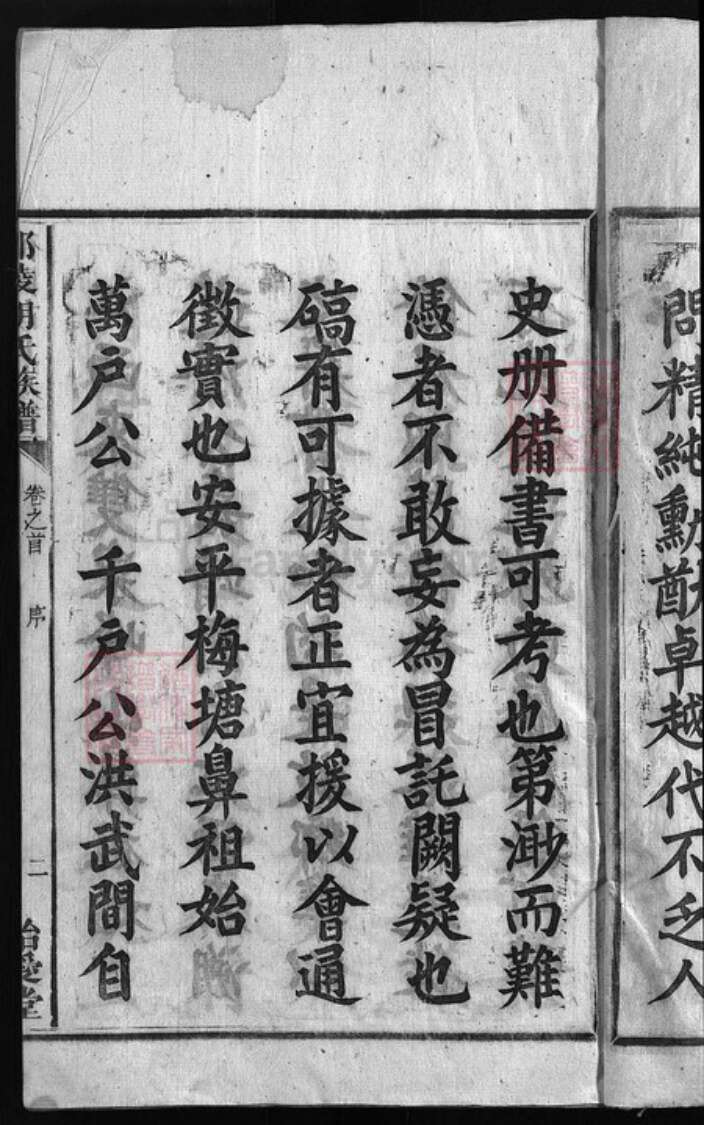 問精純勳猷卓越代不乏人
史册備書可考也第渺而難
憑者不敢妄為冒託闕疑也
碻有可據者正宜援以會通
徵實也安平梅塘鼻祖始
萬戶公 千戶公洪武間自
陵胡氏族譜
卷之首 序
二